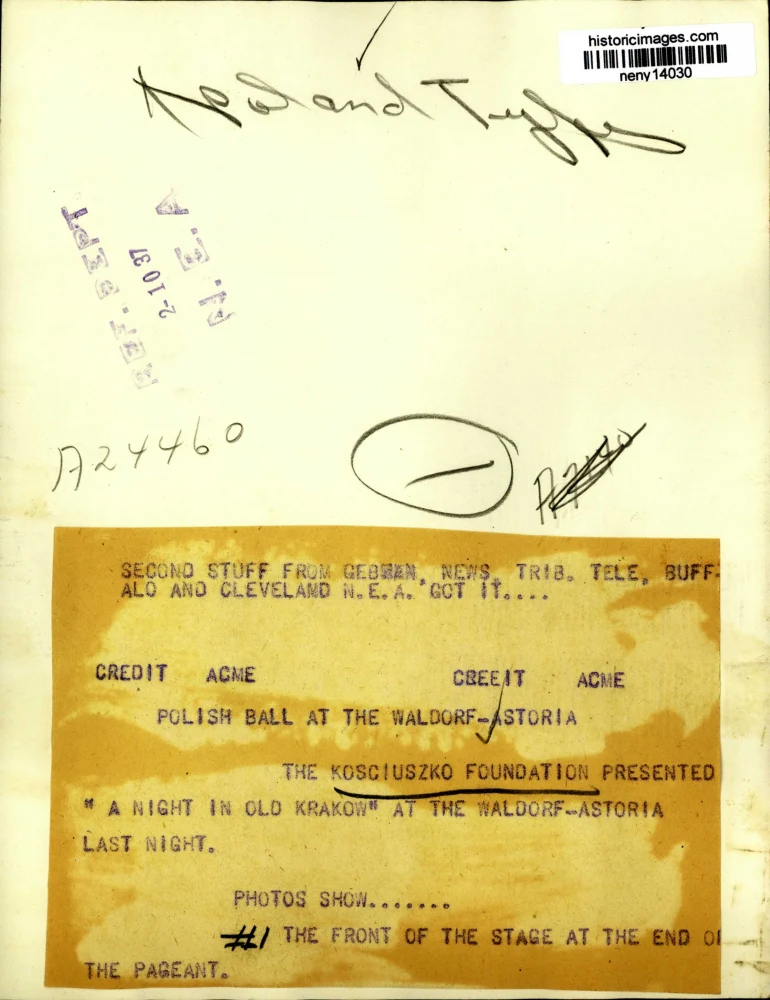 historicimages.com
neny14030
Poland
N.E.A
2-10 37
REF. DEPT
A24460
SECOND STUFF FROM GEBMAN, NEWS, TRIB. TELE, BUFF-
ALO AND CLEVELAND N.E.A. GOT IT....
CREDIT ACME CREEIT ACME
POLISH BALL AT THE WALDORF-ASTORIA
THE KOSCIUSZKO FOUNDATION PRESENTED
" A NIGHT IN OLD KRAKOW" AT THE WALDORF-ASTORIA
LAST NIGHT.
PHOTOS SHOW.......
#1 THE FRONT OF THE STAGE AT THE END OF
THE PAGEANT.